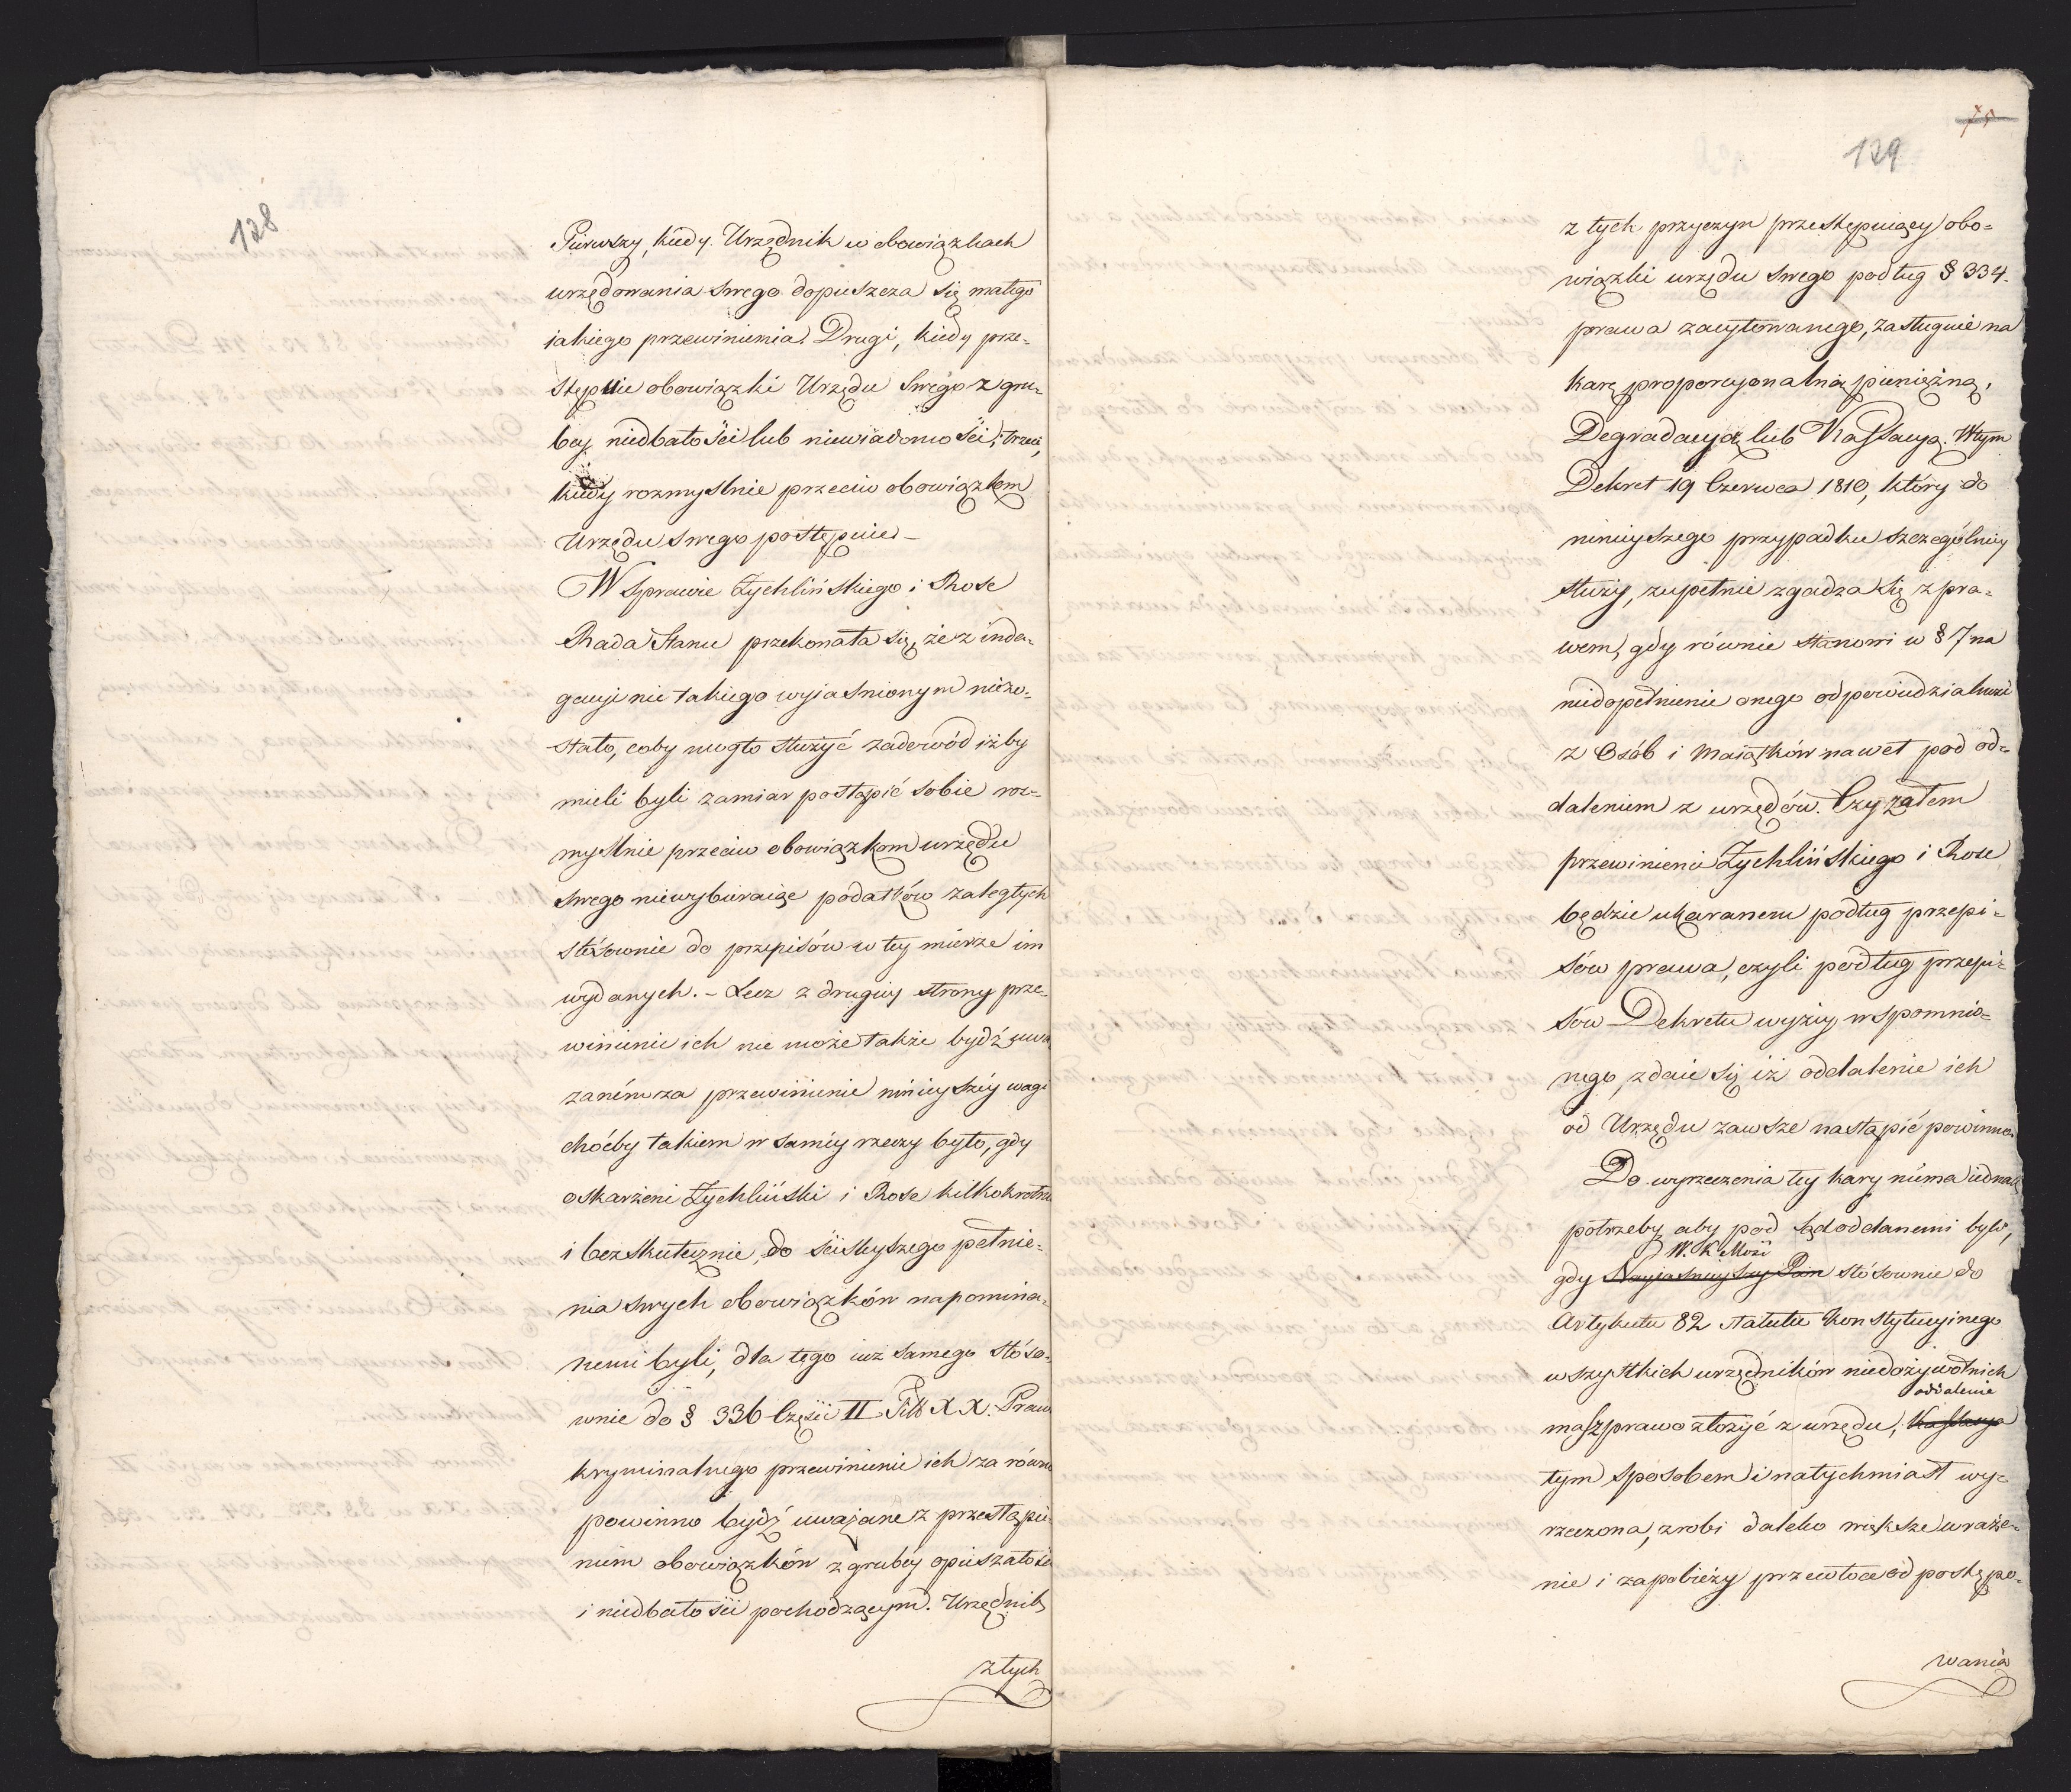 128
Pierwszy, kiedy Urzędnik w obowiązkach
urzędowania swego dopuszcza się małego
iakiego przewinienia. Drugi, kiedy prze-
stępuie obowiązki Urzędu swego z gru-
bey niedbałości lub niewiadomości; trzeci,
kiedy rozmyślnie przeciw obowiązkom
Urzędu swego postępuie. –
W Sprawie Żychlińskiego i Rose
Rada Stanu przekonała się, że z inda-
gacyi nic takiego wyjaśnionym niezo-
stało, coby mogło służyć zadowód iżby
mieli byli zamiar postąpić sobie roz-
myślnie przeciw obowiązkom urzędu
swego niewybieraiąc podatków zaległych
stósownie do przepisów w tey mierze im
wydanych. – Lecz z drugiey strony prze-
winienie ich nie może także bydź uwa
żaném za przewinienie mnieyszéy wagi
choćby takiem w saméy rzeczy było, gdy
oskarżeni Żychliński i Rose kilkokrotnie
i bezskutecznie, do ściśleyszego pełnie-
nia swych obowiązków napomina-
nemi byli, dla tego iuż samego stóso-
wnie do § 336 Części II Titt XX. Prawa
kryminalnego przewinienie ich za równe
powinno bydź uważane z przestąpie-
niem obowiązków z grubéy opieszałości
i niedbałości pochodzącym. Urzędnik
z tych
75
129
z tych przyczyn przestępuiący obo-
wiązki urzędu swego podług § 334.
prawa zacytowanego, zasługuie na
karę proporcyonalną pieniężną,
Degradacyą lub Kassacyą. W tym
Dekret 19 Czerwca 1810, który do
ninieyszego przypadku szczególniey
służy, zupełnie zgadza się z pra-
wem, gdy równie stanowi w § 7 na
niedopełnienie onego odpowiedzialność
z Osób i Maiątków nawet pod od-
daleniem z urzędów. Czy zatem
przewinienie Żychlińskiego i Rose
będzie ukaranem podług przepi-
sów prawa, czyli podług przepi-
sów Dekretu wyżéy wspomnio-
nego, zdaie się iż oddalenie ich
od Urzędu zawsze nastąpić powinno.
Do wyrzeczenia tey kary niema iednak
potrzeby, aby pod Sąd oddanemi byli,
W. K. Mość
gdy Nayiaśnieyszy Pan stósownie do
Artykułu 82 Statutu Konstytucyinego
wszystkich urzędników niedożywotnich
oddalenie
masz prawo złożyć z urzędu; Kassacya
tym sposobem i natychmiast wy-
rzeczona, zrobi daleko większe wraże-
nie i zapobieży przewłoce od postępo-
wania